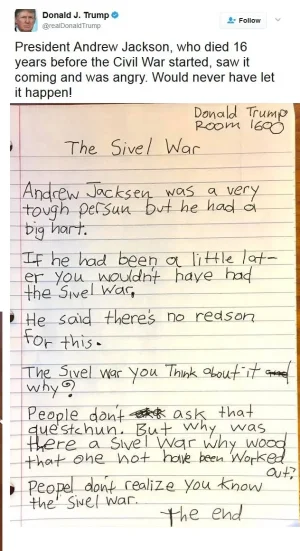 Donald J. Trump
@realDonaldTrump
Follow
President Andrew Jackson, who died 16
years before the Civil War started, saw it
coming and was angry. Would never have let
it happen!
Donald Trump
Room 1600
The Sivel War
Andrew Jacksen was a very
tough persun but he had a
big hart.
If he had been a little lat-
er you wouldnt have had
the Sivel War,
He said there's no reason
for this.
The Sivel War you Think about it
why?
People dont ask that
questchun. But why was
there a Sivel War why wood
that one not have been Worked
Out?
Peopel dont realize you know
the Sivel War.
The end